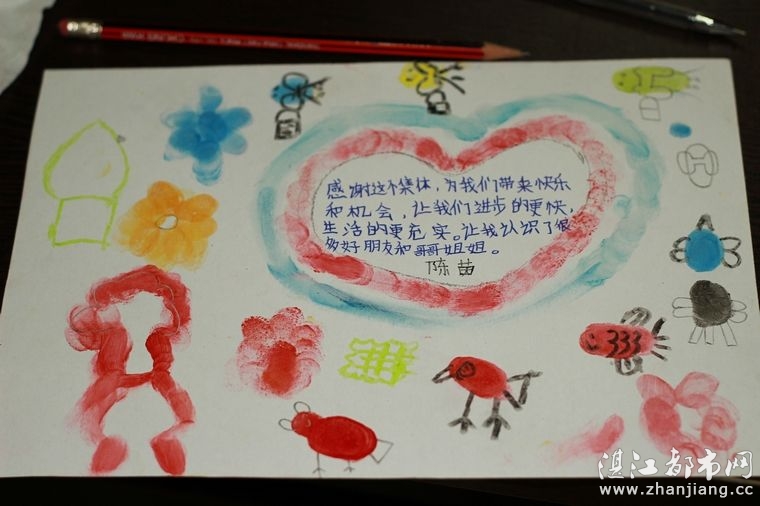 感谢这个集体，为我们带来快乐
和机会，让我们进步的更快，
生活的更充实。让我认识了很
多好朋友和哥哥姐姐。
陈苗
湛江都市网
www.zhanjiang.cc